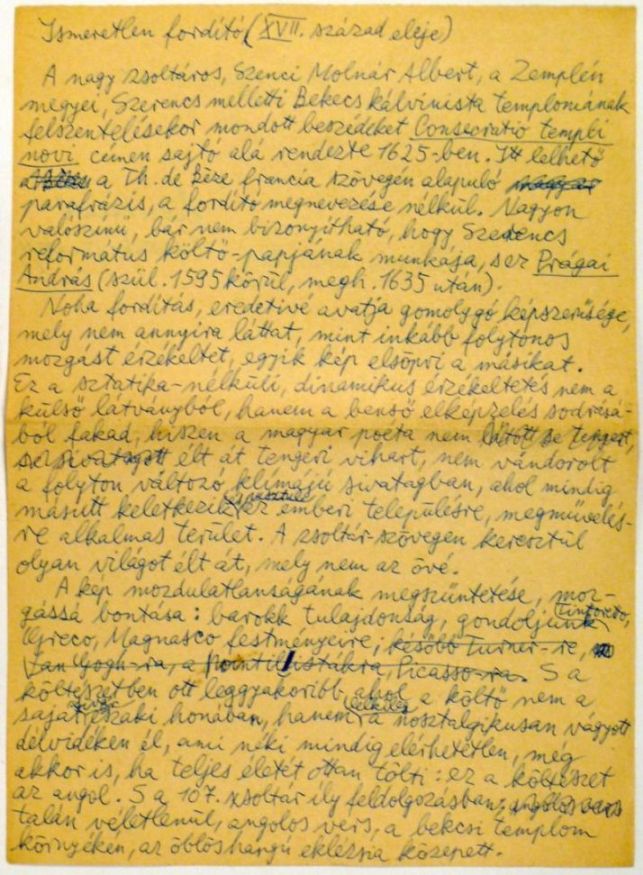 Ismeretlen fordító (XVII. század eleje)
A nagy zsoltáros, Szenci Molnár Albert, a Zemplén
megyei, Szerencs melletti Bekecs kálvinista templomának
felszentelésekor mondott beszédeket Consecratio templi
novi címen sajtó alá rendezte 1625-ben. Itt lelhető
a Th. de Bèze francia szövegén alapuló magyar
parafrázis, a fordító megnevezése nélkül. Nagyon
valószínű, bár nem bizonyítható, hogy Szerencs
református költő-papjának munkája, s ez Prágai
András (szül. 1595 körül, megh. 1635 után).
Noha fordítás, eredetivé avatja gomolygó képszerűsége,
mely nem annyira láttat, mint inkább folytonos
mozgást érzékeltet, egyik kép elsöpri a másikat.
Ez a sztatika-nélküli, dinamikus érzékeltetés nem a
külső látványból, hanem a benső elképzelés sodrásá-
ból fakad, hiszen a magyar poéta nem látott se tengert,
se sivatagot élt át tengeri vihart, nem vándorolt
a folyton változó klímájú sivatagban, ahol mindig
másutt keletkezik s pusztul el emberi településre, megművelés-
re alkalmas terület. A zsoltár-szövegen keresztül
olyan világot élt át, mely nem az övé.
A kép mozdulatlanságának megszüntetése, moz-
gássá bontása: barokk tulajdonság, gondoljunk Tintoretto,
Greco, Magnasco festményeire; később Turner-re,
Van Gogh-ra, a Pointillistákra, Picasso-ra. S a
költészetben ott leggyakoribb, ahol a költő nem a
saját északi honában, hanem lelkileg a nosztalgikusan vágyott
délvidéken él, ami néki mindig elérhetetlen, még
akkor is, ha teljes életét ottan tölti: ez a költészet
az angol. S a 107. zsoltár ily feldolgozásban, angolos vers
talán véletlenül, angolos vers, a bekecsi templom
környékén, az öblöshangú eklézsia közepett.